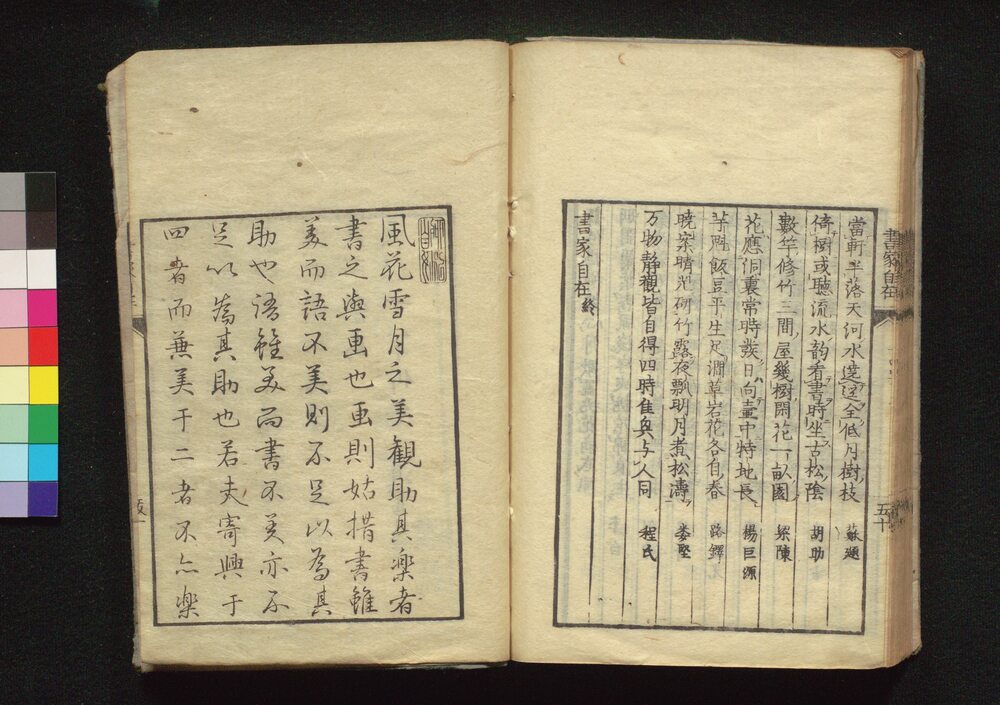 書家自在
五十
當軒半落天河水遶逕全低月樹枝 蘇頲
倚樹或聽流水韵看書時坐古松陰 胡助
數竿修竹三間屋幾樹閑花一畝園 梁陳
花應洞裏常時發日向壷中特地長 楊巨源
芋 飯豆平生足澗草岩花各自春 路鐸
曉 晴 研竹露夜瓢明月煮松濤 婁堅
万物静觀皆自得四時佳興与人同 程氏
書家自在終
風花雪月之美観助其楽者
書之與画也画則姑措書雖
美而語不美則不足以為其
助也語雖美而書不美亦不
足以為其助也若夫寄興于
四者而兼美于二者不亦楽
跋一